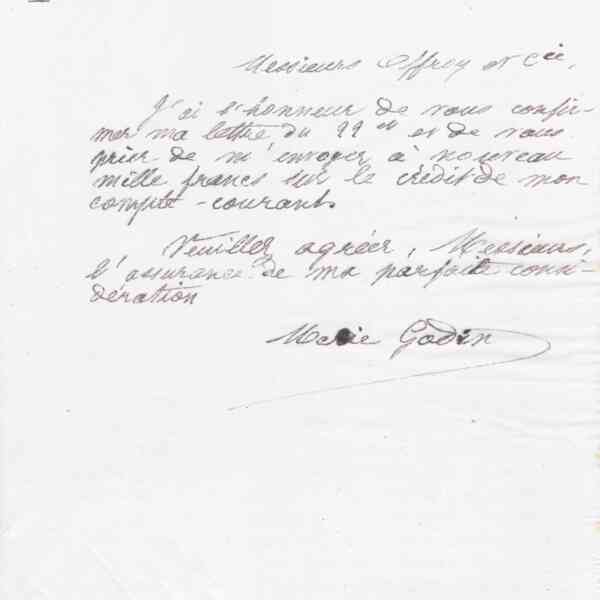 Messieurs Offroy et Cie,
J'ai l'honneur de vous confir-
mer ma lettre du 22 ct et de vous
prier de m'envoyer à nouveau
mille francs sur le crédit de mon
compte-courant.
Veuillez agréer, Messieurs,
l'assurance de ma parfaite consi-
dération
Marie Godin